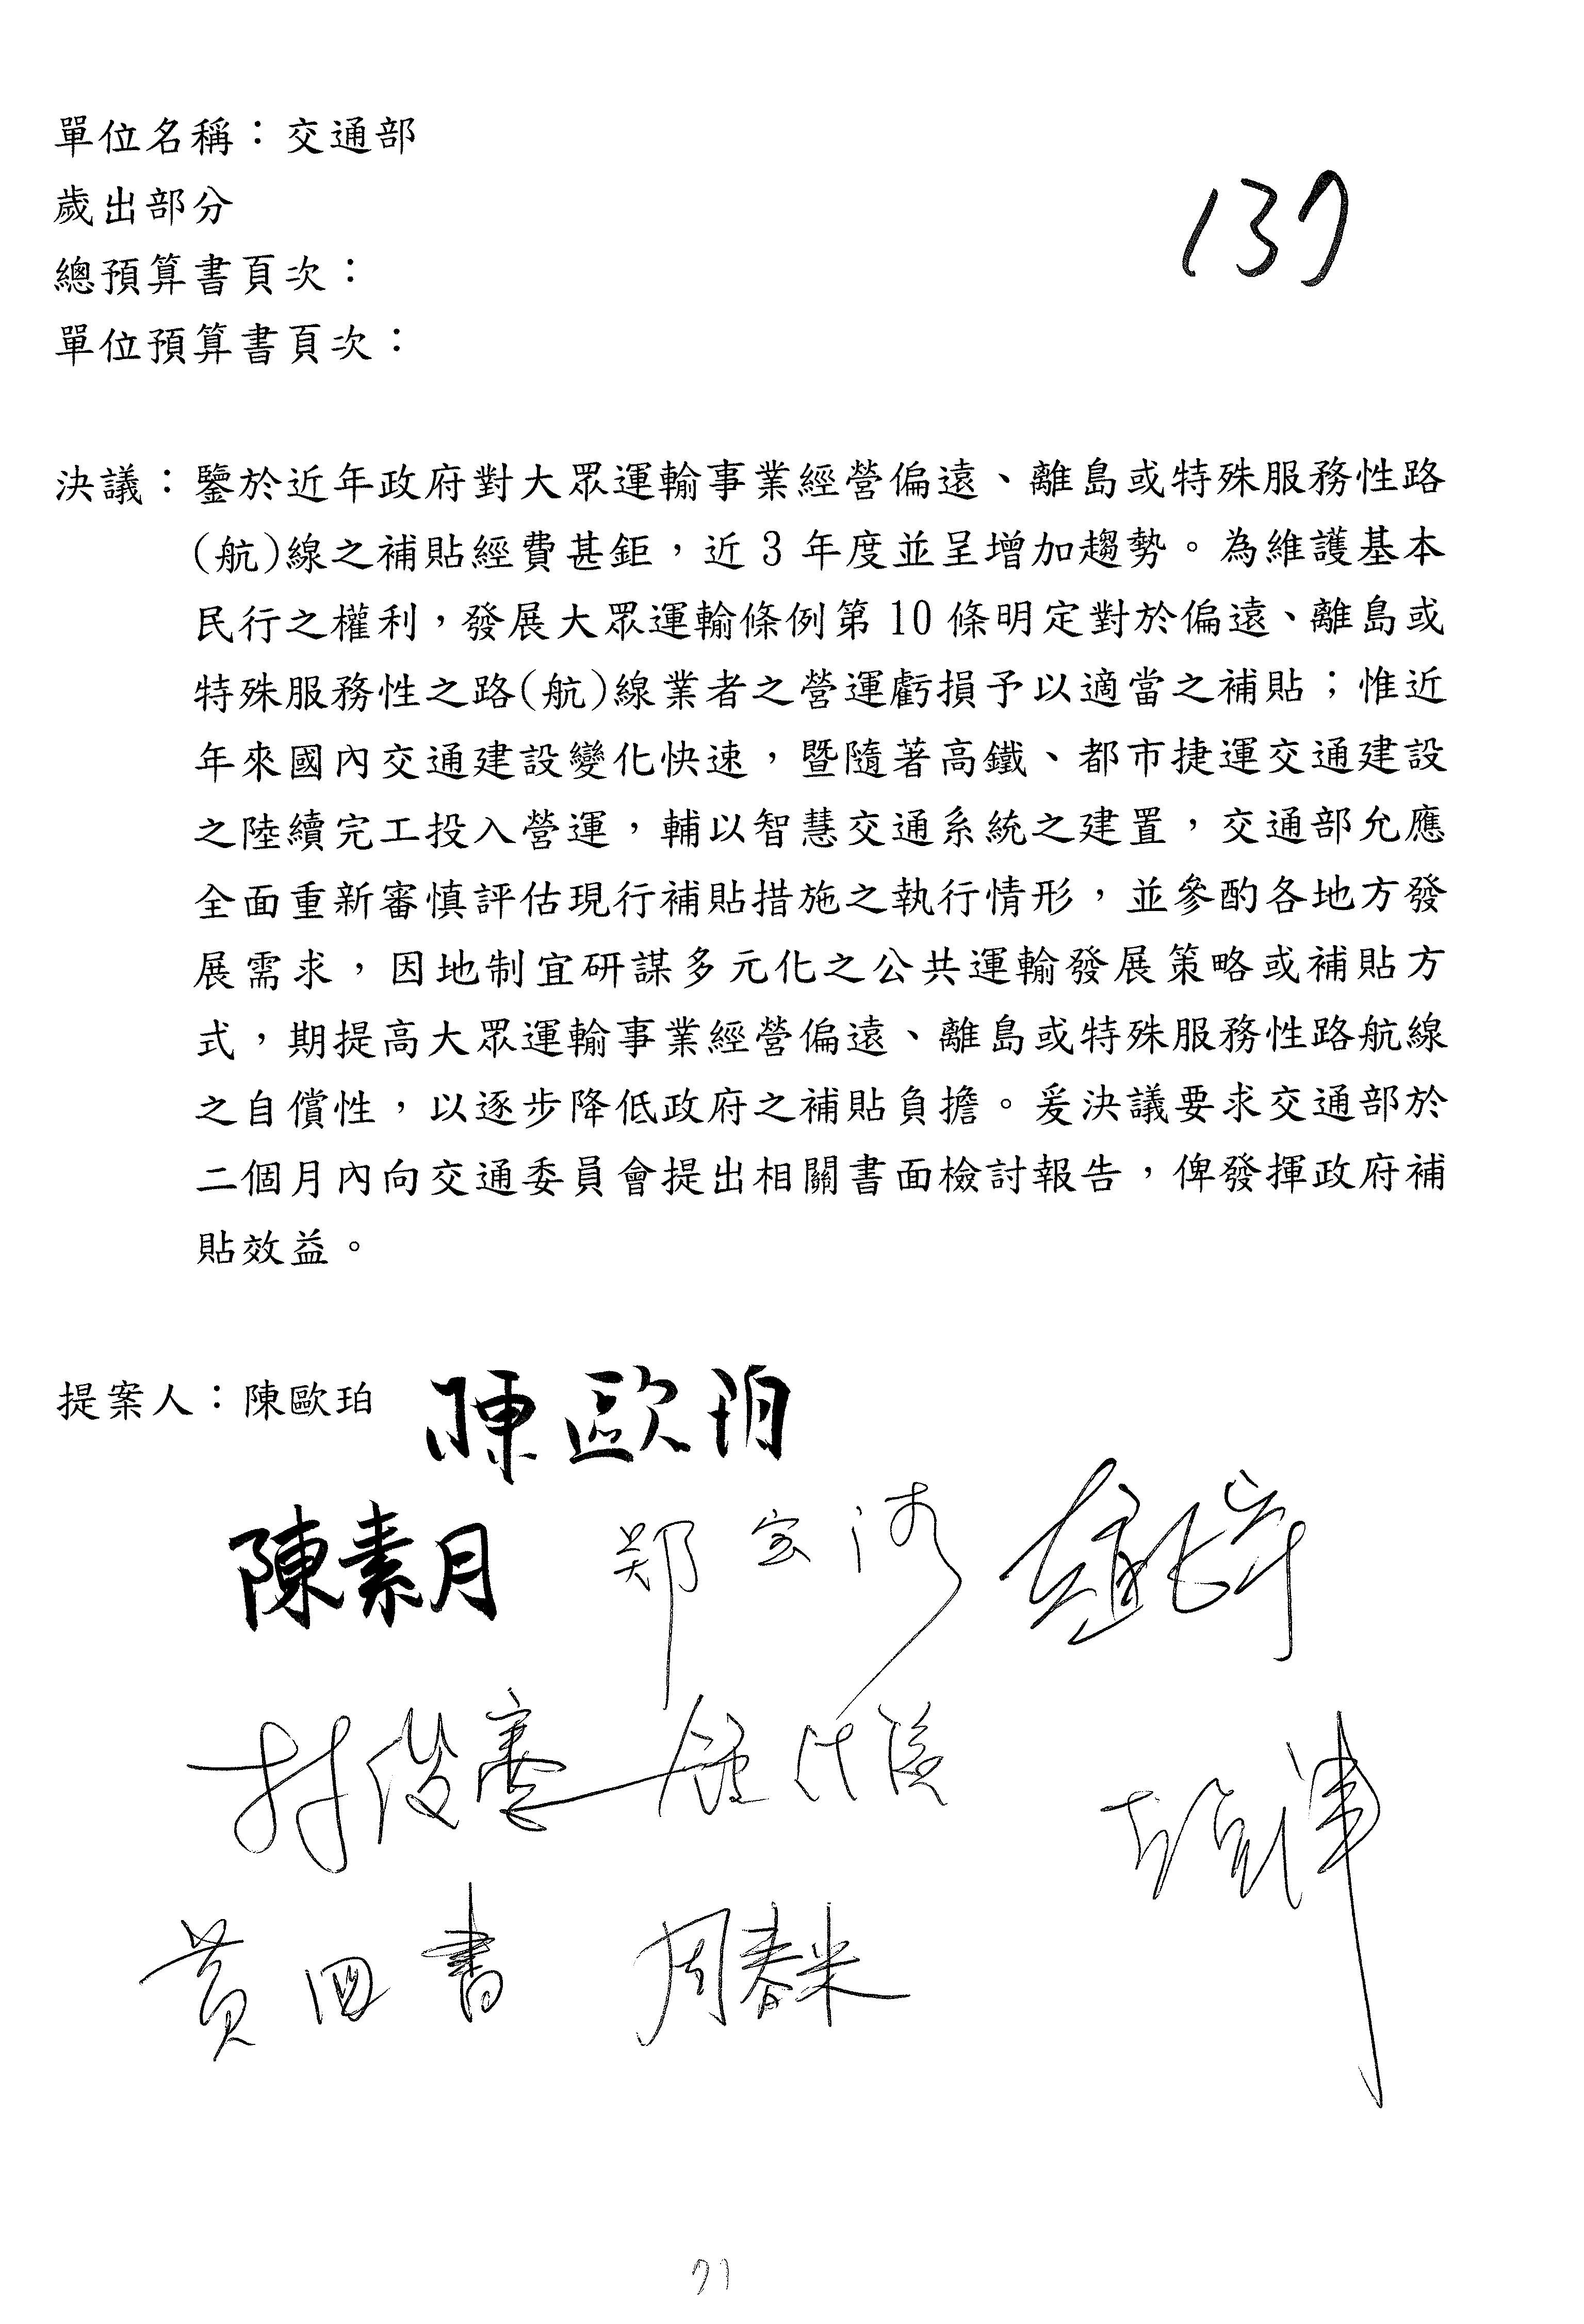 單位名稱：交通部
歲出部分
137
總預算書頁次：
單位預算書頁次：
決議：鑒於近年政府對大眾運輸事業經營偏遠、離島或特殊服務性路
(航)線之補貼經費甚鉅，近 3 年度並呈增加趨勢。為維護基本
民行之權利，發展大眾運輸條例第 10 條明定對於偏遠、離島或
特殊服務性之路(航)線業者之營運虧損予以適當之補貼；惟近
年來國內交通建設變化快速，暨隨著高鐵、都市捷運交通建設
之陸續完工投入營運，輔以智慧交通系統之建置，交通部允應
全面重新審慎評估現行補貼措施之執行情形，並參酌各地方發
展需求，因地制宜研謀多元化之公共運輸發展策略或補貼方
式，期提高大眾運輸事業經營偏遠、離島或特殊服務性路航線
之自償性，以逐步降低政府之補貼負擔。爰決議要求交通部於
二個月內向交通委員會提出相關書面檢討報告，俾發揮政府補
貼效益。
提案人：陳歐珀 陳歐珀
陳素月
林俊憲
黃國書 周春米
71